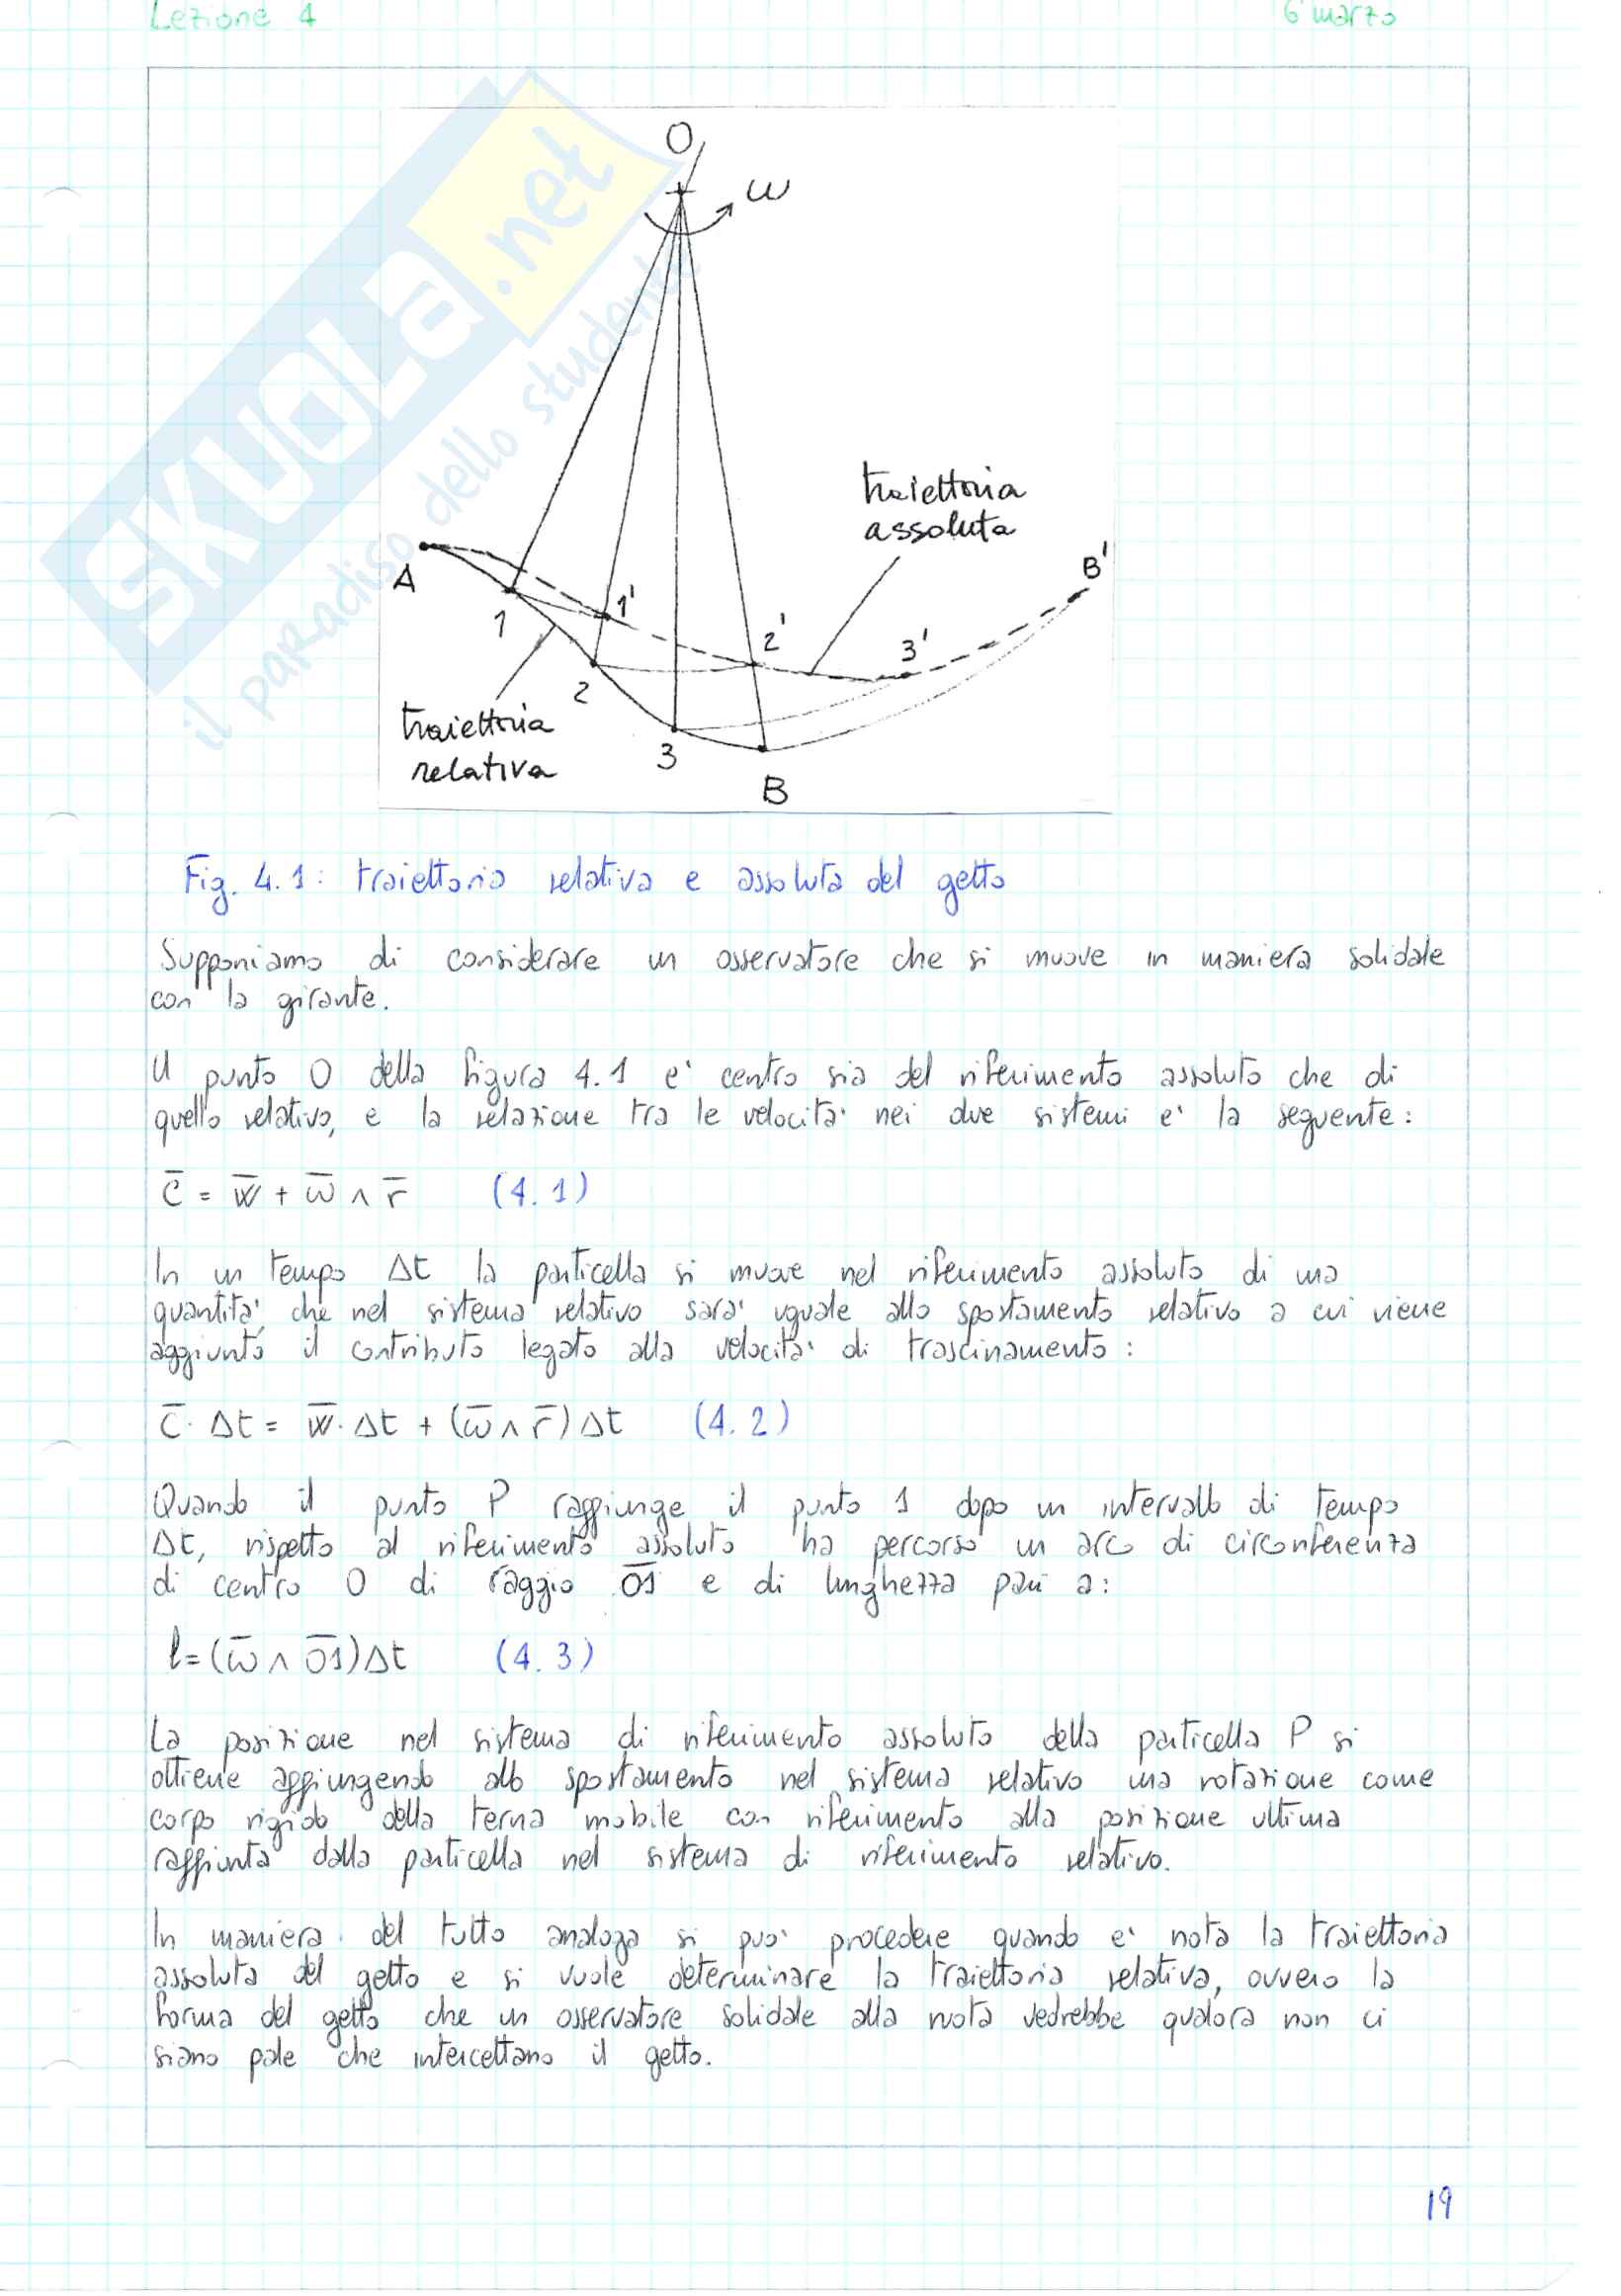 Lezione 4
6 marzo
SKUOLa.net
il paradiso dello studente
O
ω
traiettoria
assoluta
A
B'
1
1'
2'
3'
2
traiettoria
relativa
3
B
Fig. 4.1: traiettoria relativa e assoluta del getto
Supponiamo di considerare un osservatore che si muove in maniera solidale
con la girante.
Il punto O della figura 4.1 e' centro sia del riferimento assoluto che di
quello relativo, e la relazione tra le velocita' nei due sistemi e' la seguente:
c̅ = w̅ + ω̅ ∧ r̅ (4.1)
In un tempo Δt la particella si muove nel riferimento assoluto di una
quantita', che nel sistema relativo sara' uguale allo spostamento relativo a cui viene
aggiunto il contributo legato alla velocita' di trascinamento:
c̅ · Δt = w̅ · Δt + (ω̅ ∧ r̅) Δt (4.2)
Quando il punto P raggiunge il punto 1 dopo un intervallo di tempo
Δt, rispetto al riferimento assoluto ha percorso un arco di circonferenza
di centro O di raggio O̅1̅ e di lunghezza pari a:
l = (ω̅ ∧ O̅1̅) Δt (4.3)
La posizione nel sistema di riferimento assoluto della particella P si
ottiene aggiungendo allo spostamento nel sistema relativo una rotazione come
corpo rigido della terna mobile con riferimento alla posizione ultima
raggiunta dalla particella nel sistema di riferimento relativo.
In maniera del tutto analoga si puo' procedere quando e' nota la traiettoria
assoluta del getto e si vuole determinare la traiettoria relativa, ovvero la
forma del getto che un osservatore solidale alla ruota vedrebbe qualora non ci
siano pale che intercettano il getto.
19